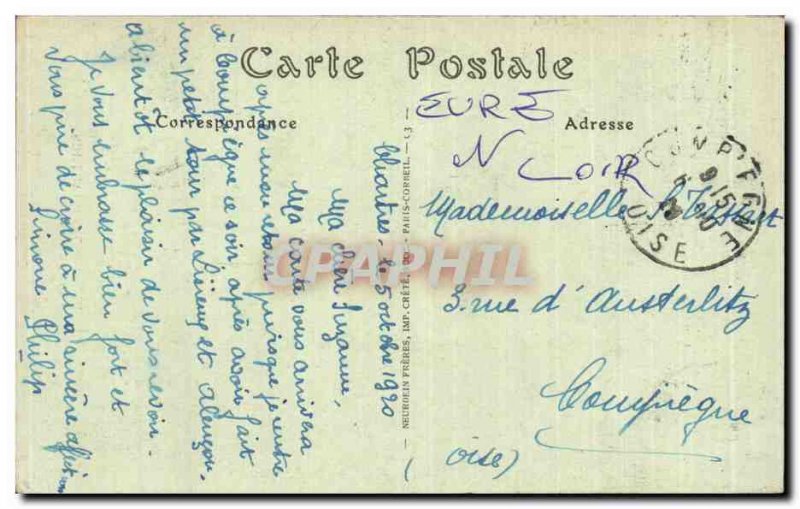 Carte Postale
Correspondance
Adresse
EURE
N LOIR
Chartres, le 5 octobre 1920
Ma chère Suzanne,
Ma carte vous arrivera
après mon retour puisque je rentre
à Compiègne ce soir après avoir fait
un petit tour par Lisieux et Alençon.
à bientôt le plaisir de vous revoir.
Je vous embrasse bien fort et
vous prie de croire à ma sincère affection
Simone Philip
NEURDEIN FRÈRES, IMP. CRÉTÉ, SUCC. PARIS-CORBEIL. — 13 —
Mademoiselle S.
3. rue d'Austerlitz
Compiègne
(Oise)
COMPIEGNE
OISE
CPAPHIL